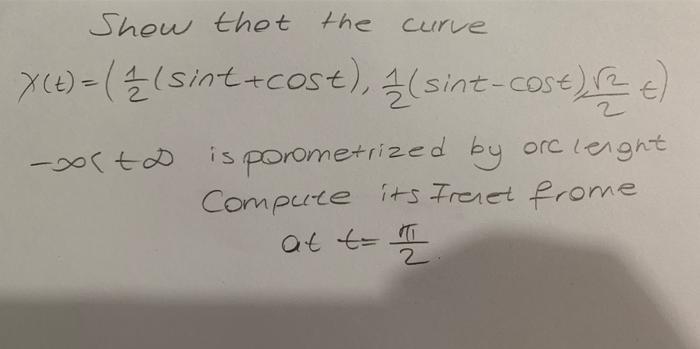 Show thot the curve
γ(t)=(½(sint+cost), ½(sint-cost), √2/2 t)
-∞< t∞ is porometrized by orc lenght
Compute its Frenet frome
at t= π/2